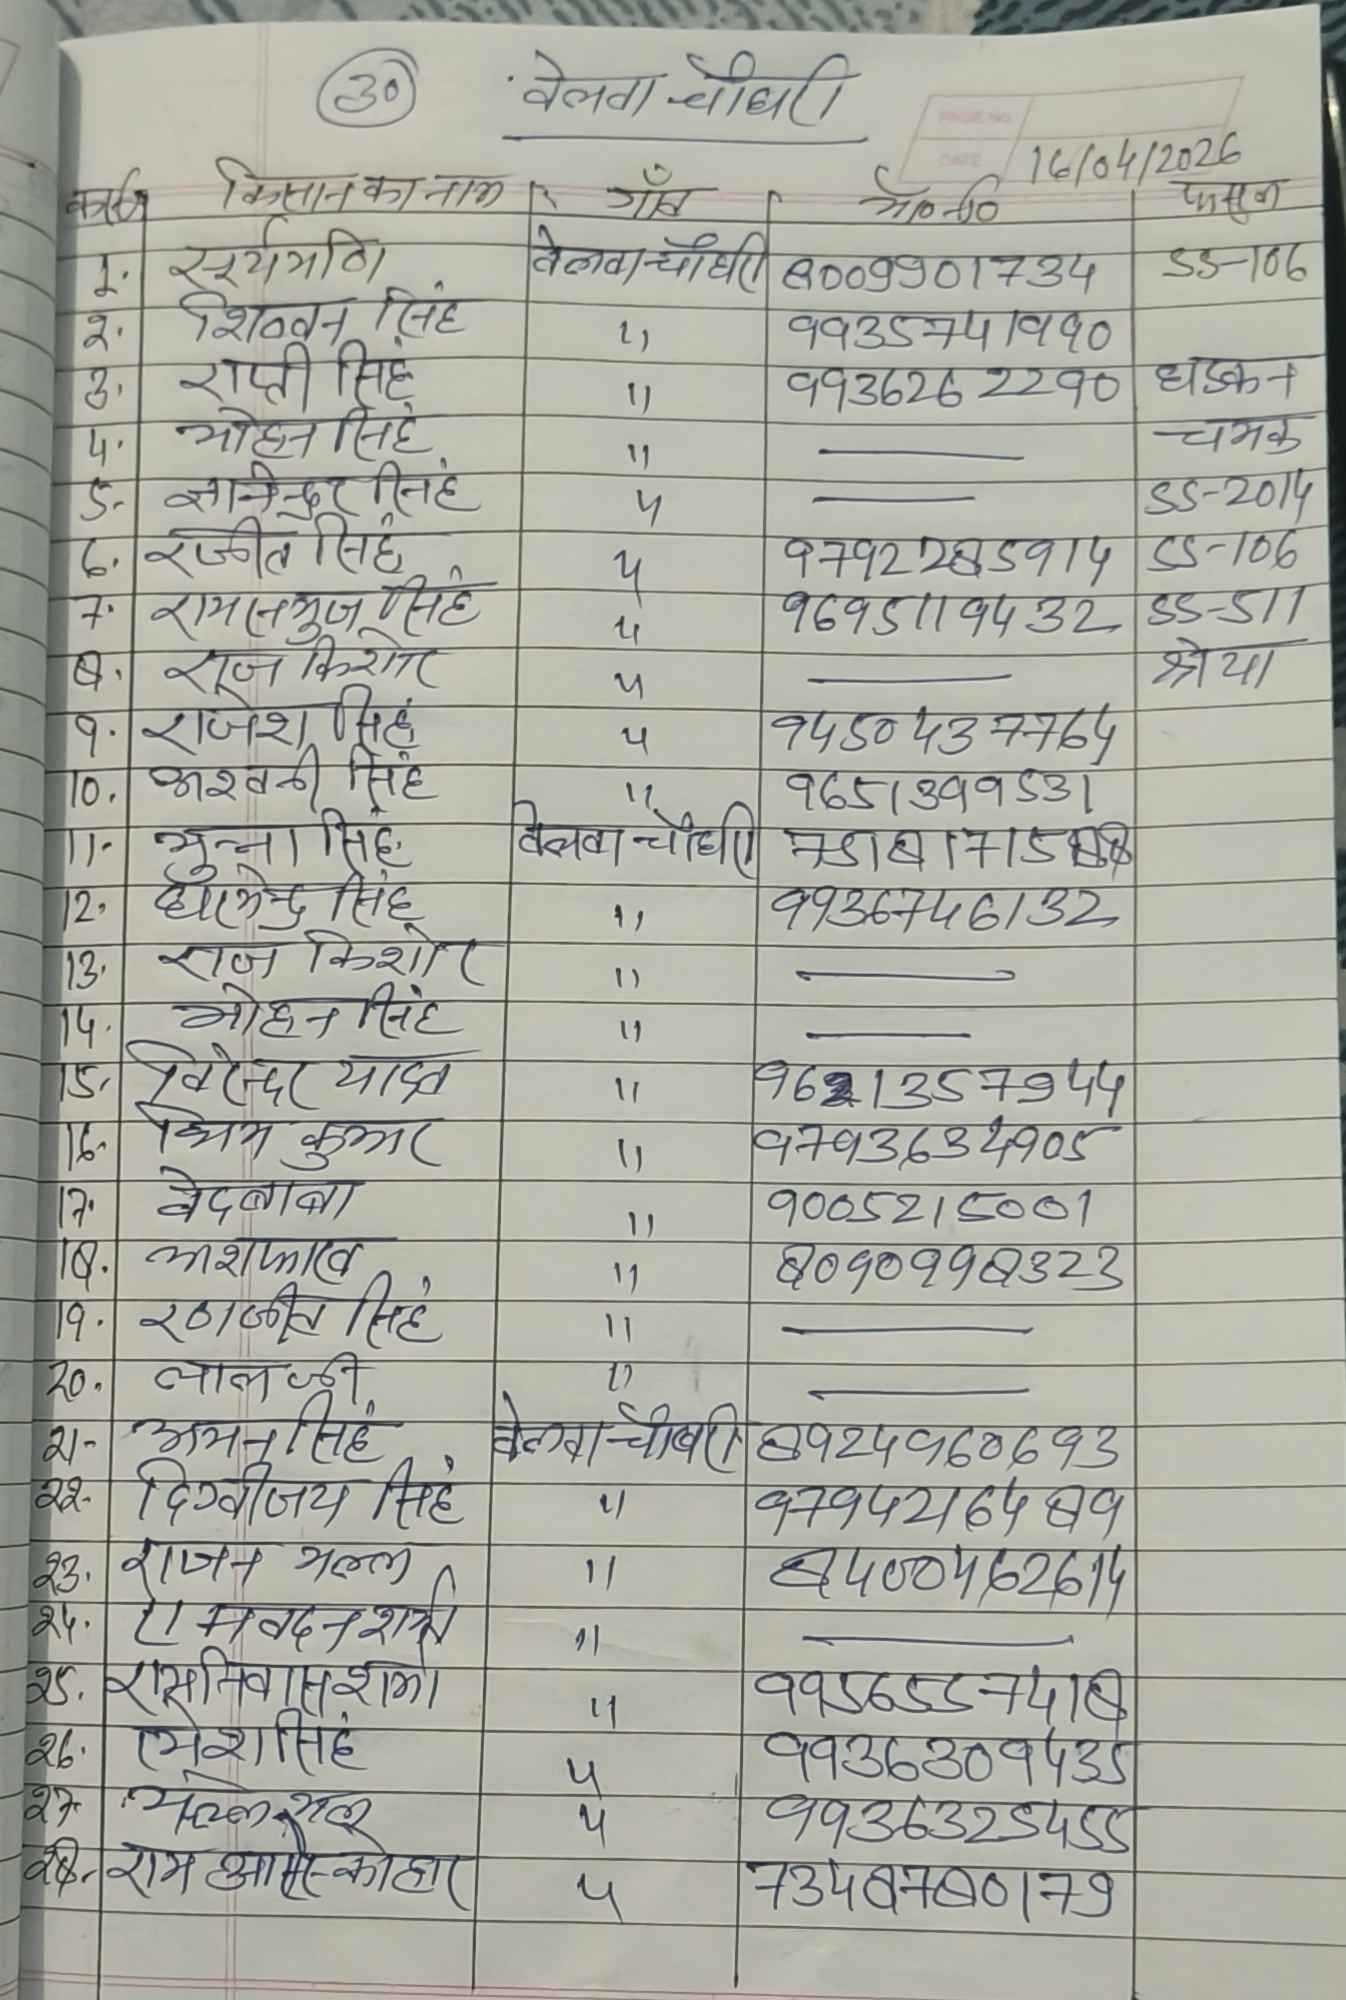 30 वेलवा चौधरी
PAGE NO.
DATE 16/04/2026
क्र०सं० किसान का नाम गाँव मो०नं० फसल
1. सूर्यमणि वेलवा चौधरी 8009901734 SS-106
२. शिवबन सिंह " 9935741990
3. राप्ती सिंह " 9936262290 धडकन
4. मोहन सिंह " — चमक
5. ज्ञानेन्द्र सिंह " — SS-2014
6. रंजीत सिंह " 9792285914 SS-106
7. रामानुभुज सिंह " 9695119432 SS-511
8. राज किशोर " — श्रेया
9. राजेश सिंह " 9450437764
10. अश्वनी सिंह " 9651399531
11. मुन्ना सिंह वेलवा चौधरी 7518171588
12. धर्मेन्द्र सिंह " 9936746132
13. राज किशोर " —
14. मोहन सिंह " —
15. विरेन्द्र यादव " 9621357944
16. प्रिम कुमार " 9793634905
17. वेदबाबा " 9005215001
18. अशफाक " 8090998323
19. रणजीत सिंह " —
20. लालजी " —
२1. अमन सिंह वेलवा चौधरी 8924960693
२२. दिग्वीजय सिंह " 9794216489
२3. राजन मल्ल " 8400462614
२4. रामबदन शर्मा " —
२5. रामनिवास शर्मा " 9956557418
२6. रमेश सिंह " 9936309435
२7. " 9936325455
२8. राम " 7348780179